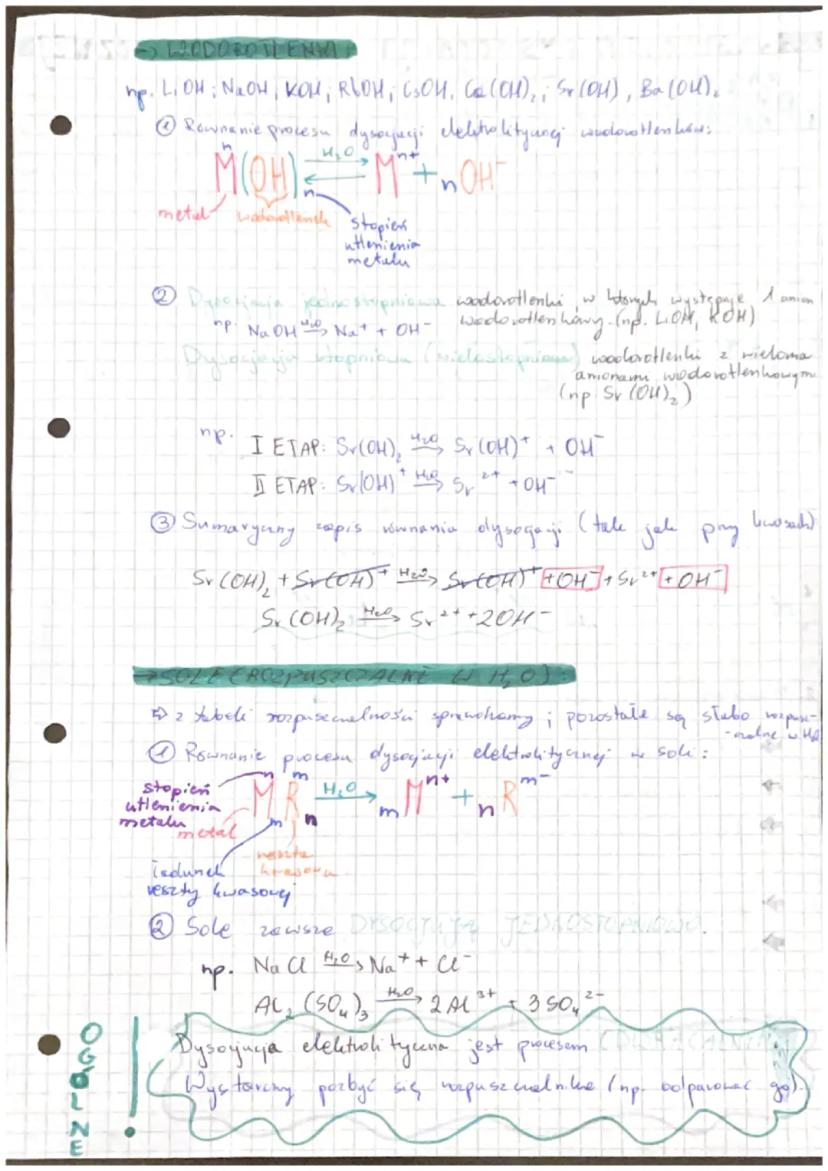 → WODOROTLENKI
np. LiOH; NaOH, KOH, RbOH, CsOH, Ca(OH)₂, Sr(OH), Ba(OH)₂
① Równanie procesu dysocjacji elektrolitycznej wodorotlenków:
M(OH)n ⇄ Mⁿ⁺ + nOH⁻
n H₂O
metal wodorotlenek stopień
utlenienia
metalu
② Dysocjacja jednostopniowa wodorotlenki, w których występuje 1 anion
np. NaOH H₂O→ Na⁺ + OH⁻ wodorotlenkowy. (np. LiOH, KOH)
Dysocjacja stopniowa (wielostopniowa) wodorotlenki z wieloma
anionami wodorotlenkowymi
(np. Sr(OH)₂)
np. I ETAP: Sr(OH)₂ H₂O→ Sr(OH)⁺ + OH⁻
II ETAP: Sr(OH)⁺ H₂O→ Sr²⁺ + OH⁻
③ Sumaryczny zapis równania dysocjacji (tak jak przy kwasach)
Sr(OH)₂ + Sr(OH)⁺ H₂O→ Sr(OH)⁺ + OH⁻ + Sr²⁺ + OH⁻
Sr(OH)₂ H₂O→ Sr²⁺ + 2OH⁻
→ SOLE (ROZPUSZCZALNE W H₂O):
⇨ z tabeli rozpuszczalności sprawdzamy; pozostałe są słabo rozpusz-
-czalne w H₂O
① Równanie procesu dysocjacji elektrolitycznej soli:
n m
MmRn H₂O→ mMⁿ⁺ + nRᵐ⁻
stopień
utlenienia
metalu
metal
reszta
kwasowa
ładunek
reszty kwasowej
② Sole zawsze DYSOCJUJĄ JEDNOSTOPNIOWO.
np. NaCl H₂O→ Na⁺ + Cl⁻
Al₂(SO₄)₃ H₂O→ 2Al³⁺ + 3SO₄²⁻
OGÓLNE!
Dysocjacja elektrolityczna jest procesem
Wystarczy pozbyć się rozpuszczalnika (np. odparować go).